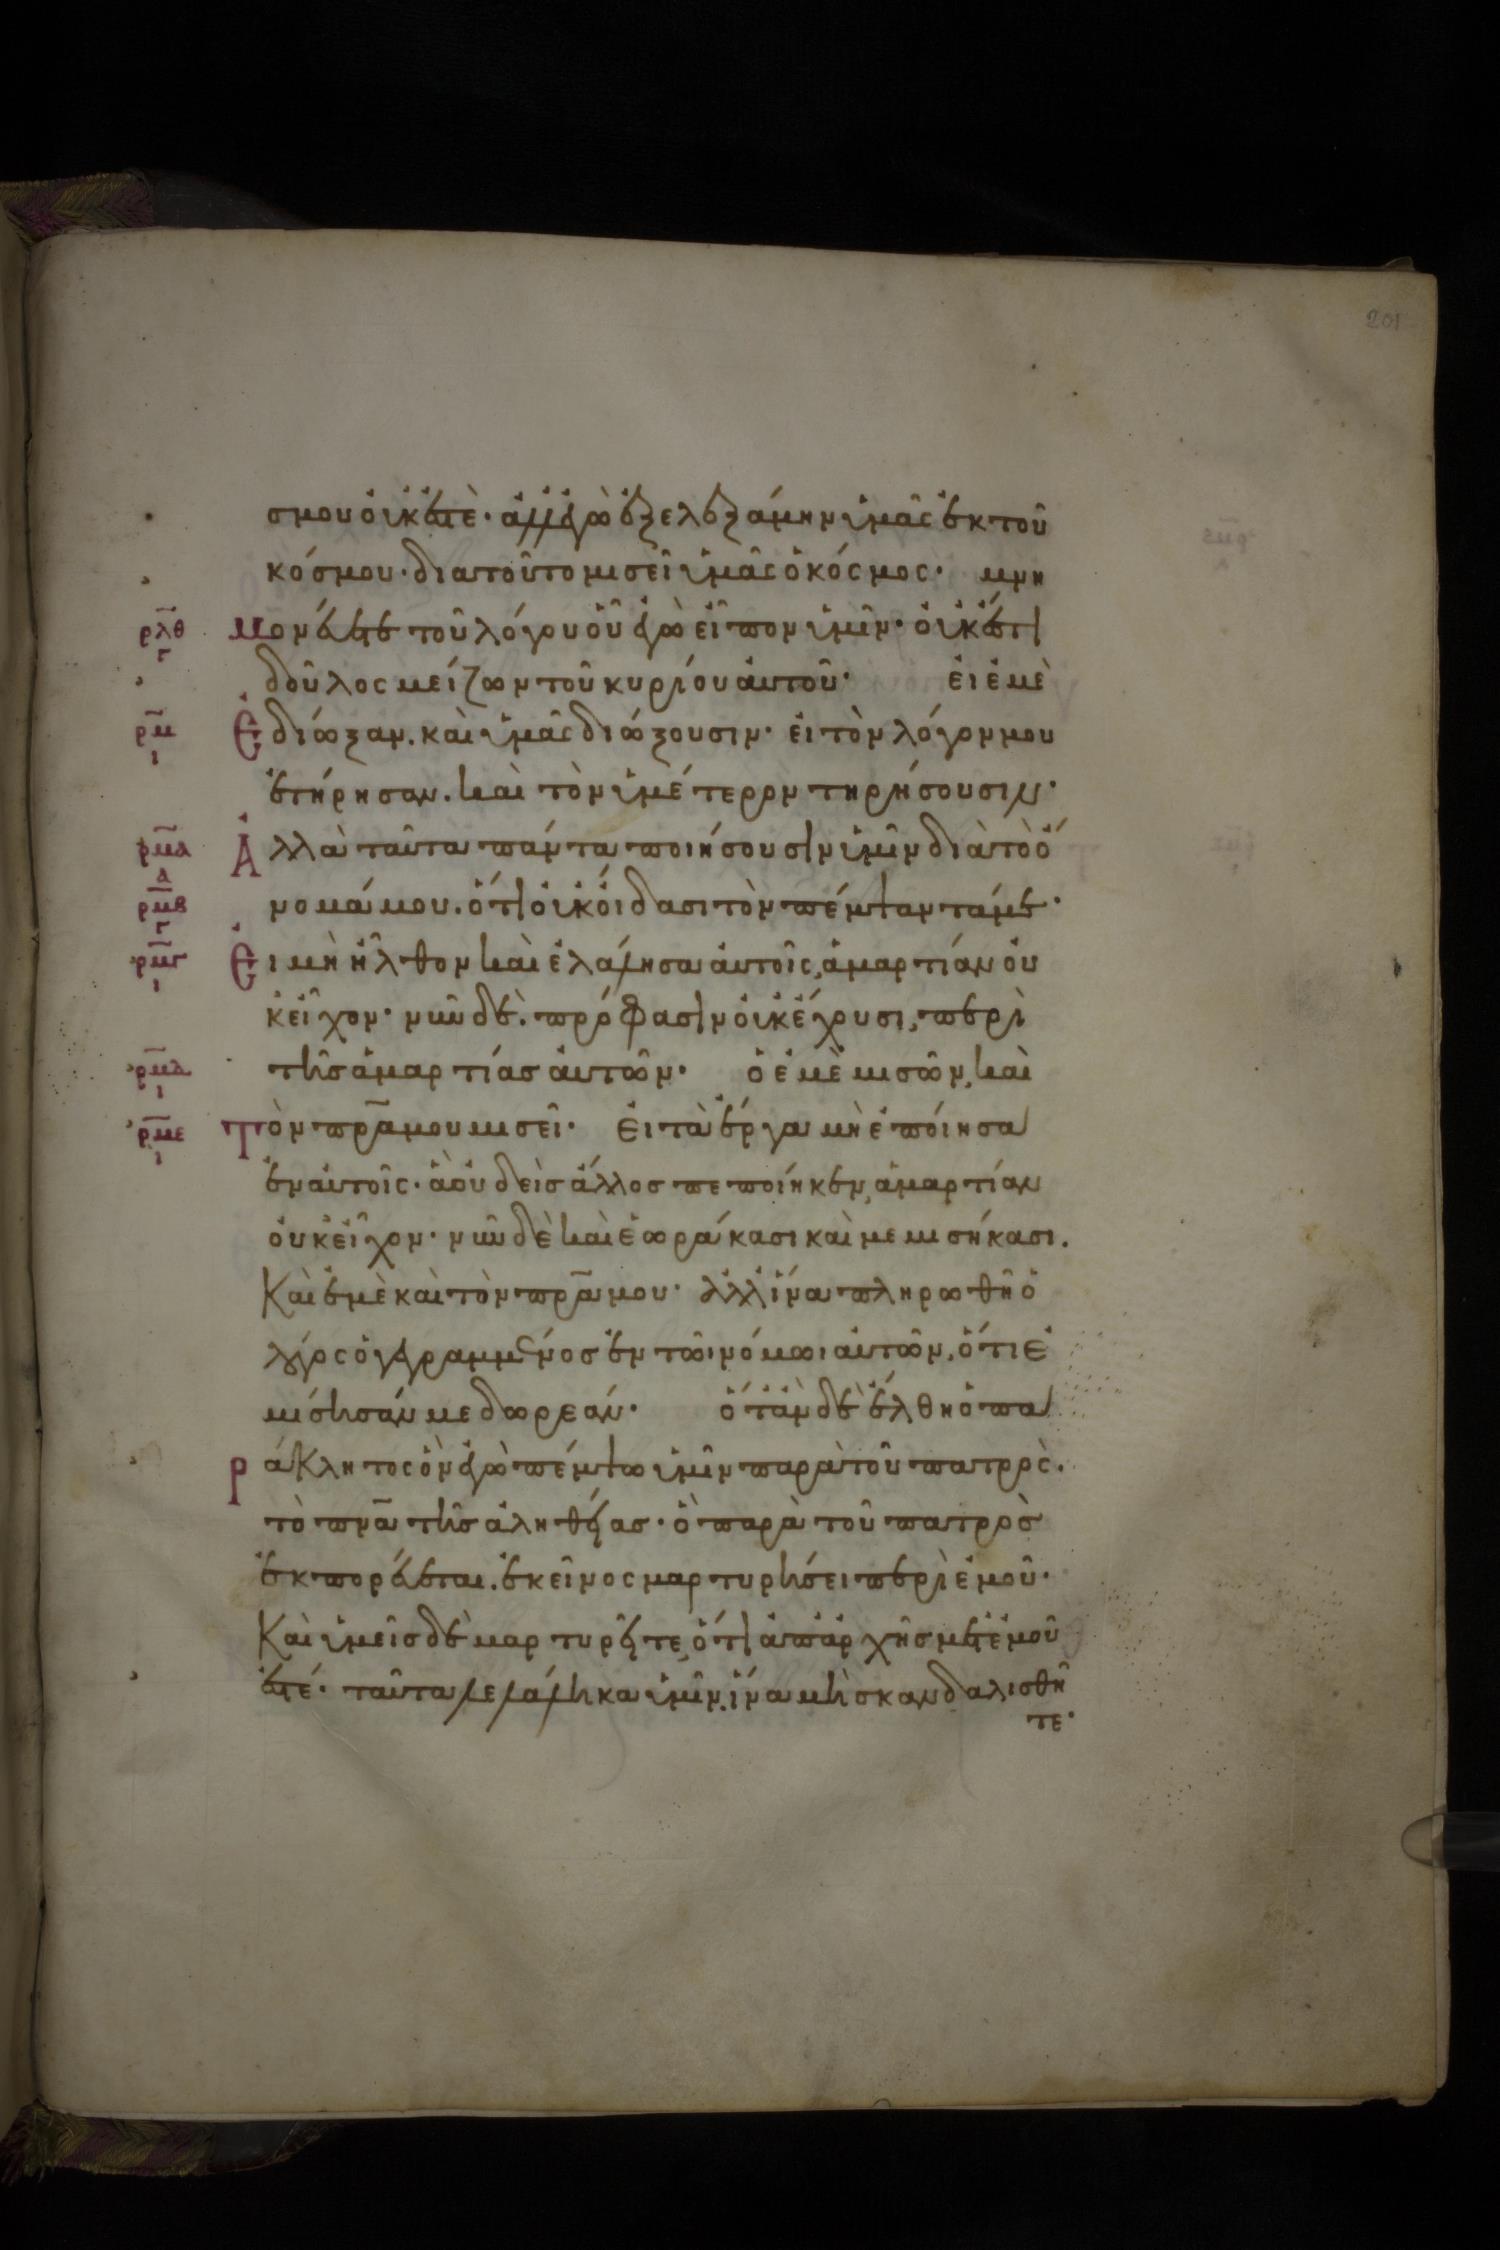 201
σμου οὐκ ἐστὲ· ἀλλ' ἐγὼ ἐξελεξάμην ὑμᾶς ἐκ τοῦ
κόσμου· διατοῦτο μισεῖ ὑμᾶς ὁ κόσμος· μνη
ρλθ γ μονεύετε τοῦ λόγου οὗ ἐγὼ εἶπον ὑμῖν· οὐκ ἔστι
δοῦλος μείζων τοῦ κυρίου αὐτοῦ· εἰ ἐμὲ
ρμ ι ἐδίωξαν. καὶ ὑμᾶς διώξουσιν· εἰ τὸν λόγον μου
ἐτήρησαν. καὶ τὸν ὑμέτερον τηρήσουσιν·
ρμα α Ἀλλὰ ταῦτα πάντα ποιήσουσιν ὑμῖν διὰ τὸ ὄ
ρμβ γ νομά μου. ὅτι οὐκ οἴδασι τὸν πέμψαντά με·
ρμγ ι Εἰ μὴ ἦλθον καὶ ἐλάλησα αὐτοῖς, ἁμαρτίαν οὐ
κ εἶχον· νῦν δὲ. πρόφασιν οὐκ ἔχουσι, περὶ
ρμδ ι τῆς ἁμαρτίας αὐτῶν· ὁ ἐμὲ μισῶν, καὶ
ρμε ι τὸν πρα μου μισεῖ· Εἰ τὰ ἔργα μὴ ἐποίησα
ἐν αὐτοῖς· ἃ οὐδεὶς ἄλλος πεποίηκεν, ἁμαρτίαν
οὐκ εἶχον· νῦν δὲ καὶ ἑωράκασι καὶ μεμισήκασι.
Καὶ ἐμὲ καὶ τὸν πρα μου· ἀλλ' ἵνα πληρωθῆ ὁ
λόγος ὁ γεγραμμένος ἐν τῶι νόμωι αὐτῶν, ὅτι ἐ
μίσησάν με δωρεάν· ὅταν δὲ ἔλθη ὁ πα
ράκλητος ὃν ἐγὼ πέμψω ὑμῖν παρὰ τοῦ πατρὸς.
τὸ πνα τῆς ἀληθείας· ὃ παρὰ τοῦ πατρὸς
ἐκπορεύεται. ἐκεῖνος μαρτυρήσει περὶ ἐμοῦ·
Καὶ ὑμεῖς δὲ μαρτυρεῖτε, ὅτι ἀπ' ἀρχῆς μετ' ἐμοῦ
ἐστέ· ταῦτα λελάληκα ὑμῖν. ἵνα μὴ σκανδαλισθῆ
τε·